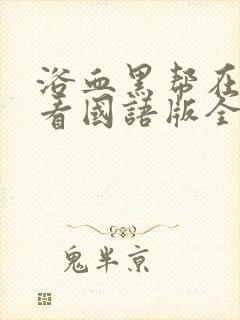 浴血黑帮在
看國語版全
鬼半京